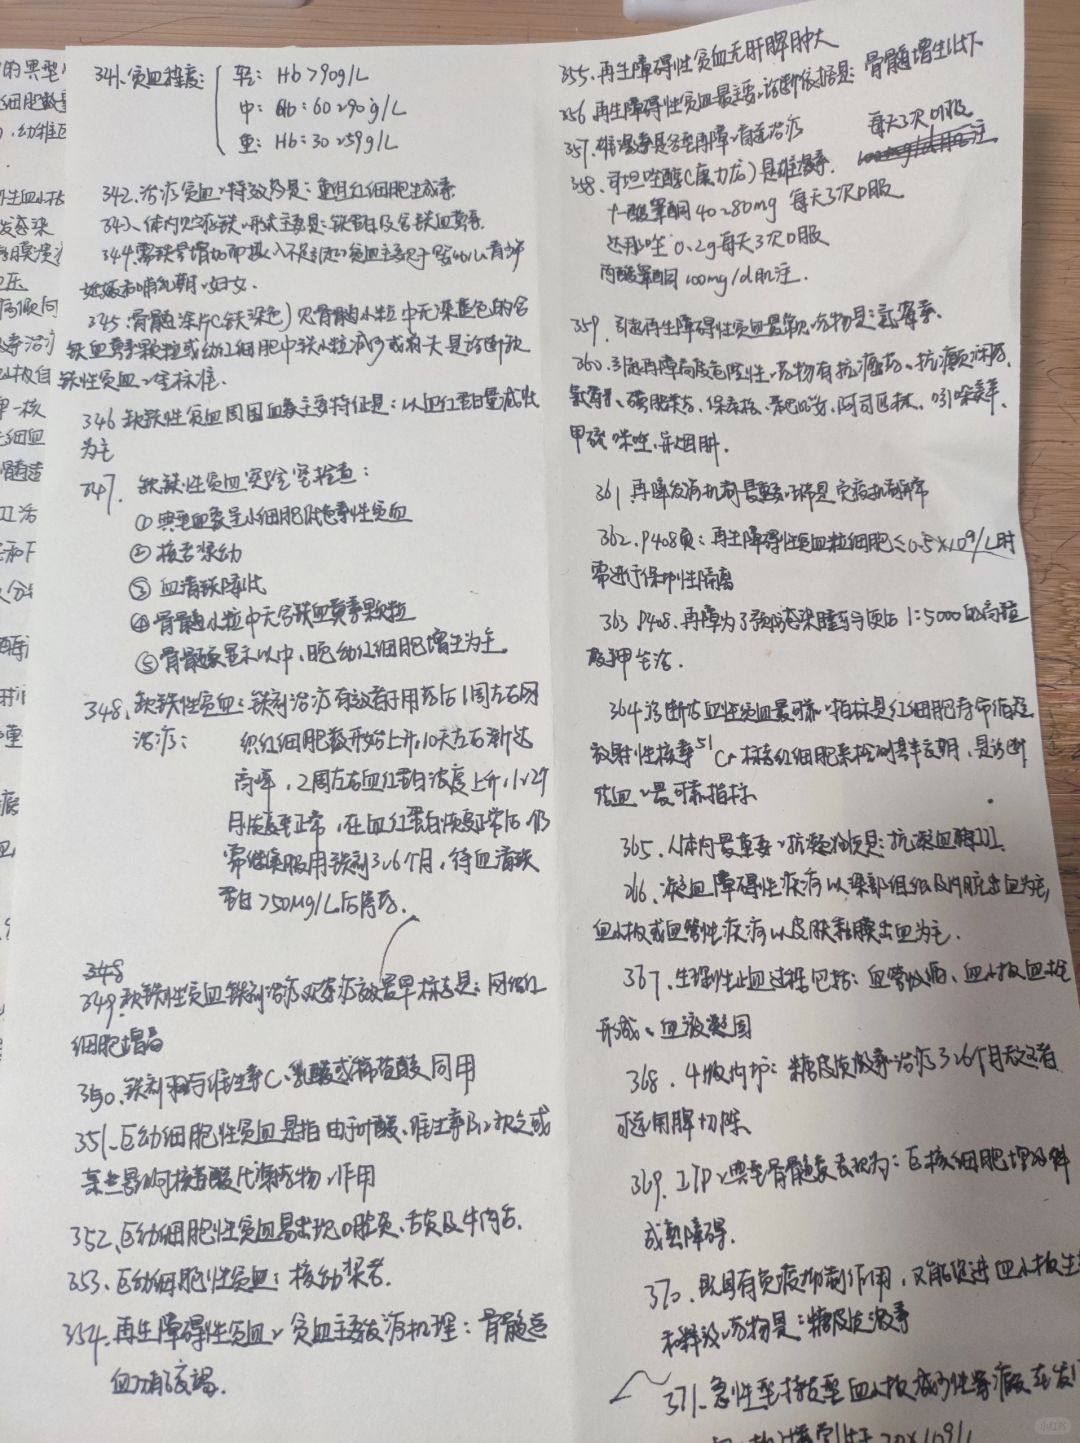 的典型
细胞数量
341.贫血程度:
轻: Hb>90g/L
中: Hb: 60~90g/L
重: Hb: 30~59g/L
342.治疗贫血、特效药是:重组红细胞生成素
343.体内贮存铁、形式主要是:铁蛋白及含铁血黄素.
344.需铁量增加而摄入不足引起、贫血主要见于婴幼儿、青少年
妊娠和哺乳期、妇女.
345.骨髓涂片(铁染色)见骨髓小粒中无深蓝色的含
铁血黄素颗粒或幼红细胞中铁小粒减少或消失是诊断缺
铁性贫血、金标准.
346 缺铁性贫血周围血象主要特征是:以血红蛋白量减少
为主
347. 缺铁性贫血实验室检查:
①典型血象呈小细胞低色素性贫血
②核老浆幼
③血清铁降低
④骨髓小粒中无含铁血黄素颗粒
⑤骨髓象显示以中、晚幼红细胞增生为主.
348.缺铁性贫血:铁剂治疗有效者于用药后1周左右网
治疗:
织红细胞数开始上升,10天左右渐达
高峰,2周左右血红蛋白浓度上升,1~2个
月恢复至正常,在血红蛋白恢复正常后,仍
需继续服用铁剂3~6个月,待血清铁
蛋白>50μg/L后停药.
348
349.缺铁性贫血铁剂治疗观察疗效最早指标是:网织红
细胞增高
350.铁剂可与维生素C、乳酸或稀盐酸同用
351.巨幼细胞性贫血是指由于叶酸、维生素B12缺乏或
某些影响核苷酸代谢药物、作用
352.巨幼细胞性贫血易出现口腔炎、舌炎及牛肉舌.
353.巨幼细胞性贫血:核幼浆老.
354.再生障碍性贫血、贫血主要发病机理:骨髓造
血功能衰竭.
355.再生障碍性贫血无肝脾肿大
356 再生障碍性贫血最主要、诊断依据是:骨髓增生低下
357.雄激素是全型再障、首选治疗
每天3次口服
358.司坦唑醇(康力龙)是雄激素.
十一酸睾酮 40~80mg 每天3次口服
达那唑 0.2g每天3次口服
丙酸睾酮 100mg/d肌注.
359.引起再生障碍性贫血最常见、药物是:氯霉素.
360.引起再障高度危险性、药物有抗癌药、抗癫痫药、
氯霉素、磺胺类药、保泰松、苯巴比妥、阿司匹林、吲哚美辛、
甲巯咪唑、异烟肼.
361 再障发病机制最重要、环节是免疫机制异常
362.P408页:再生障碍性贫血粒细胞≤0.5×10⁹/L时
需进行保护性隔离
363.P408.再障为了预防感染睡前与便后1:5000的高锰
酸钾坐浴.
364 诊断溶血性贫血最可靠、指标是红细胞寿命缩短
放射性核素⁵¹Cr标志红细胞来检测其半衰期,是诊断
溶血、最可靠指标
365.人体内最重要、抗凝物质是:抗凝血酶III.
366.凝血障碍性疾病以深部组织及内脏出血为主,
血小板或血管性疾病以皮肤黏膜出血为主.
367.生理性止血过程包括:血管收缩、血小板血栓
形成、血液凝固
368.4版内护:糖皮质激素治疗3~6个月无效者
可选用脾切除.
369.ITP、典型骨髓象表现为:巨核细胞增多伴
成熟障碍.
370.既具有免疫抑制作用,又能促进血小板生
和释放、药物是:糖皮质激素
371.急性型特发型血小板减少性紫癜在发